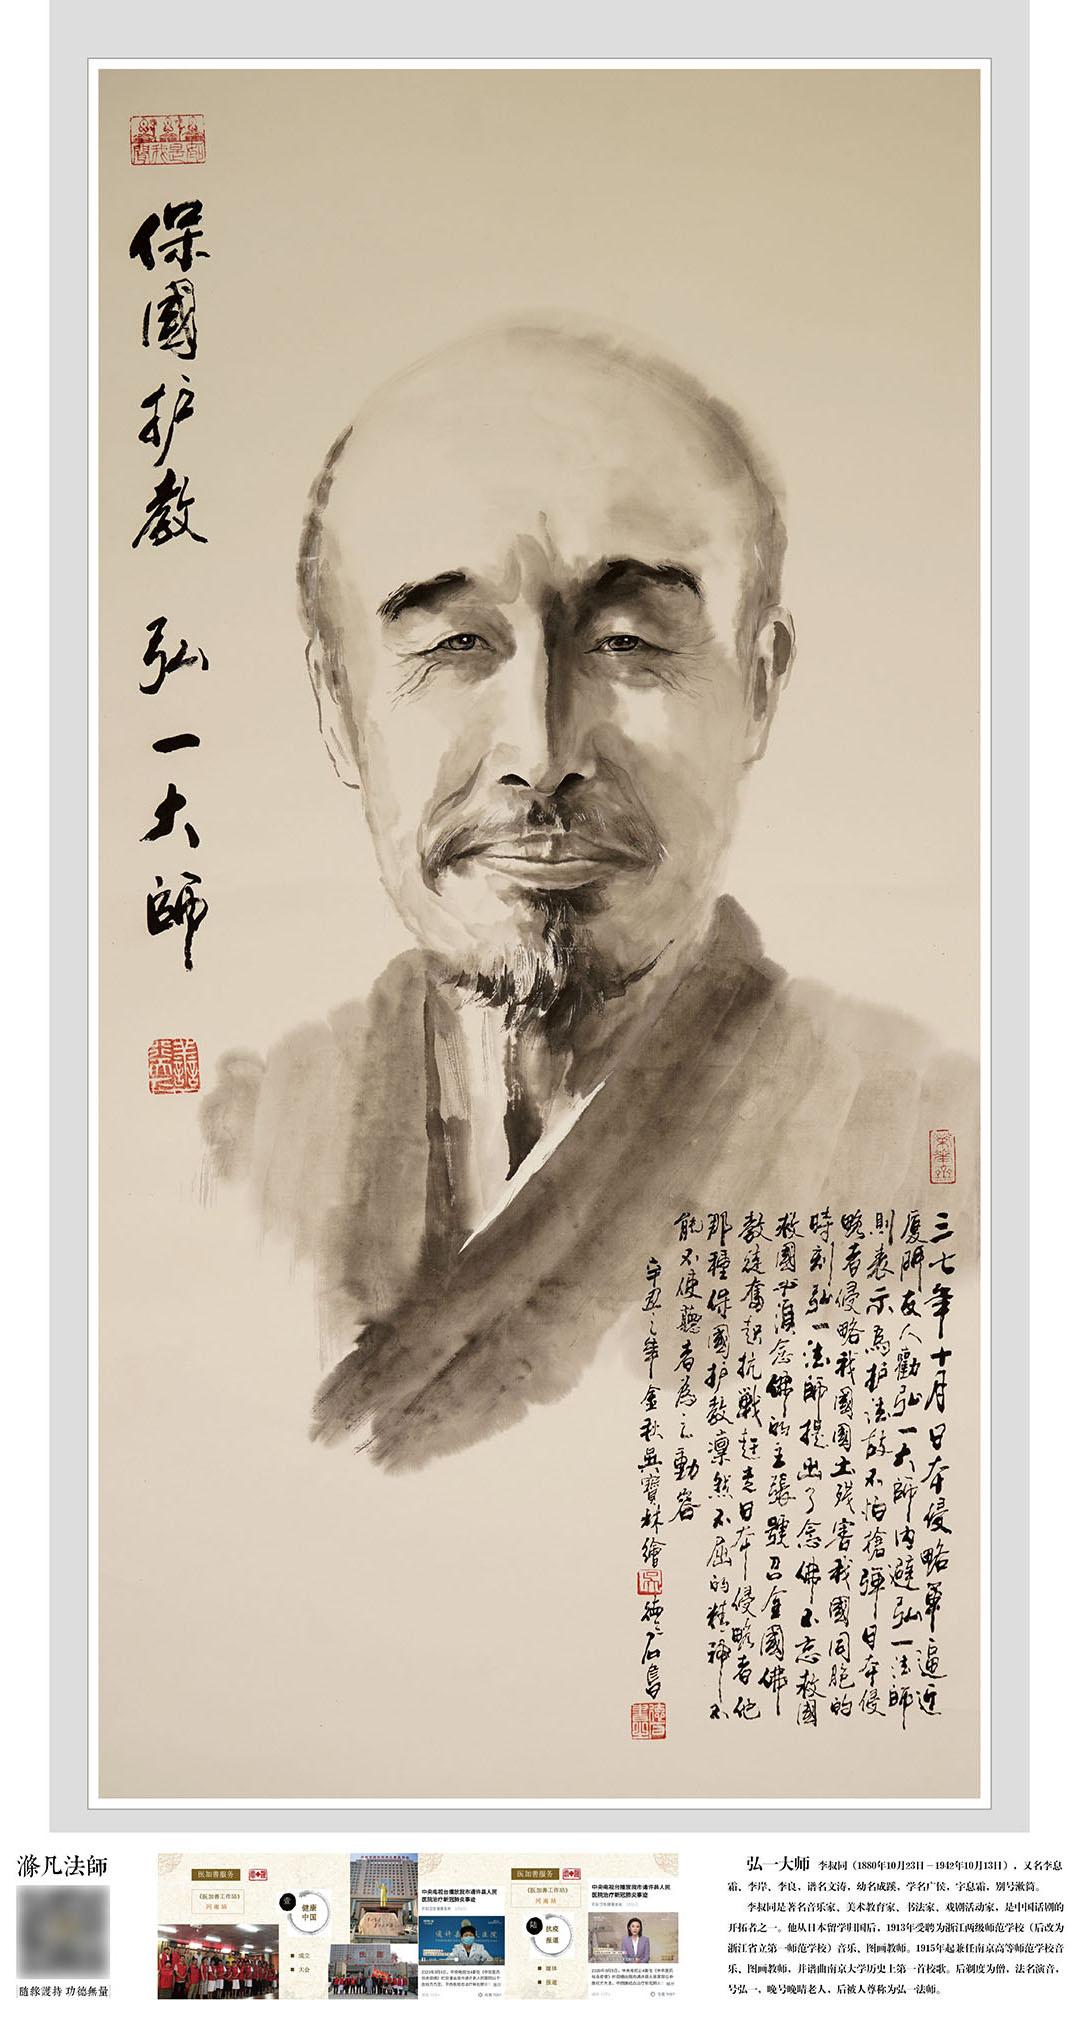 保國护教 弘一大師
三七年十月日本侵略軍逼近
厦門友人勸弘一大師内避弘一法師
則表示為护法故不怕搶彈日本侵
略者侵略我國國土残害我國同胞的
時刻弘一法師提出了念佛不忘救國
救國必須念佛的主張號召全國佛
教徒奮起抗戰赶走日本侵略者他
那種保國护教凛然不屈的精神不
能不使聽者為之動容
辛丑之年金秋吳寶林繪
德石書
滌凡法師
随緣護持 功德無量
医加善服务
《医加善工作站》
河南站
壹
健康
中国
成立
大会
中央电视台播放我市通许县人民
医院治疗新冠肺炎事迹
医加善服务
《医加善工作站》
河南站
陆
抗疫
报道
媒体
报道
中央电视台播放我市通许县人民
医院治疗新冠肺炎事迹
弘一大师 李叔同（1880年10月23日－1942年10月13日），又名李息
霜、李岸、李良，谱名文涛，幼名成蹊，学名广侯，字息霜，别号漱筒。
李叔同是著名音乐家、美术教育家、书法家、戏剧活动家，是中国话剧的
开拓者之一。他从日本留学归国后，1913年受聘为浙江两级师范学校（后改为
浙江省立第一师范学校）音乐、图画教师。1915年起兼任南京高等师范学校音
乐、图画教师，并谱曲南京大学历史上第一首校歌。后剃度为僧，法名演音，
号弘一，晚号晚晴老人，后被人尊称为弘一法师。